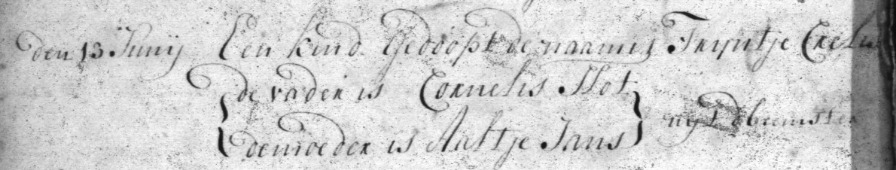 den 13 Junij Een kind Gedoopt de naam is Trijntje
de vader is Cornelis Slot
de moeder is Aaltje Jans uyt d beemster